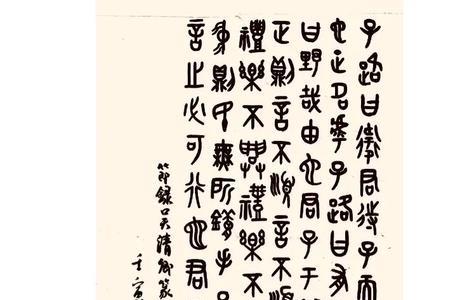 子路曰衛君待子而
也正名乎子路曰有
曰野哉由也君子于
正則言不順言不順
禮樂不興禮樂不
則民無所錯手足
言之必可行也君
節錄吳清卿篆
壬寅